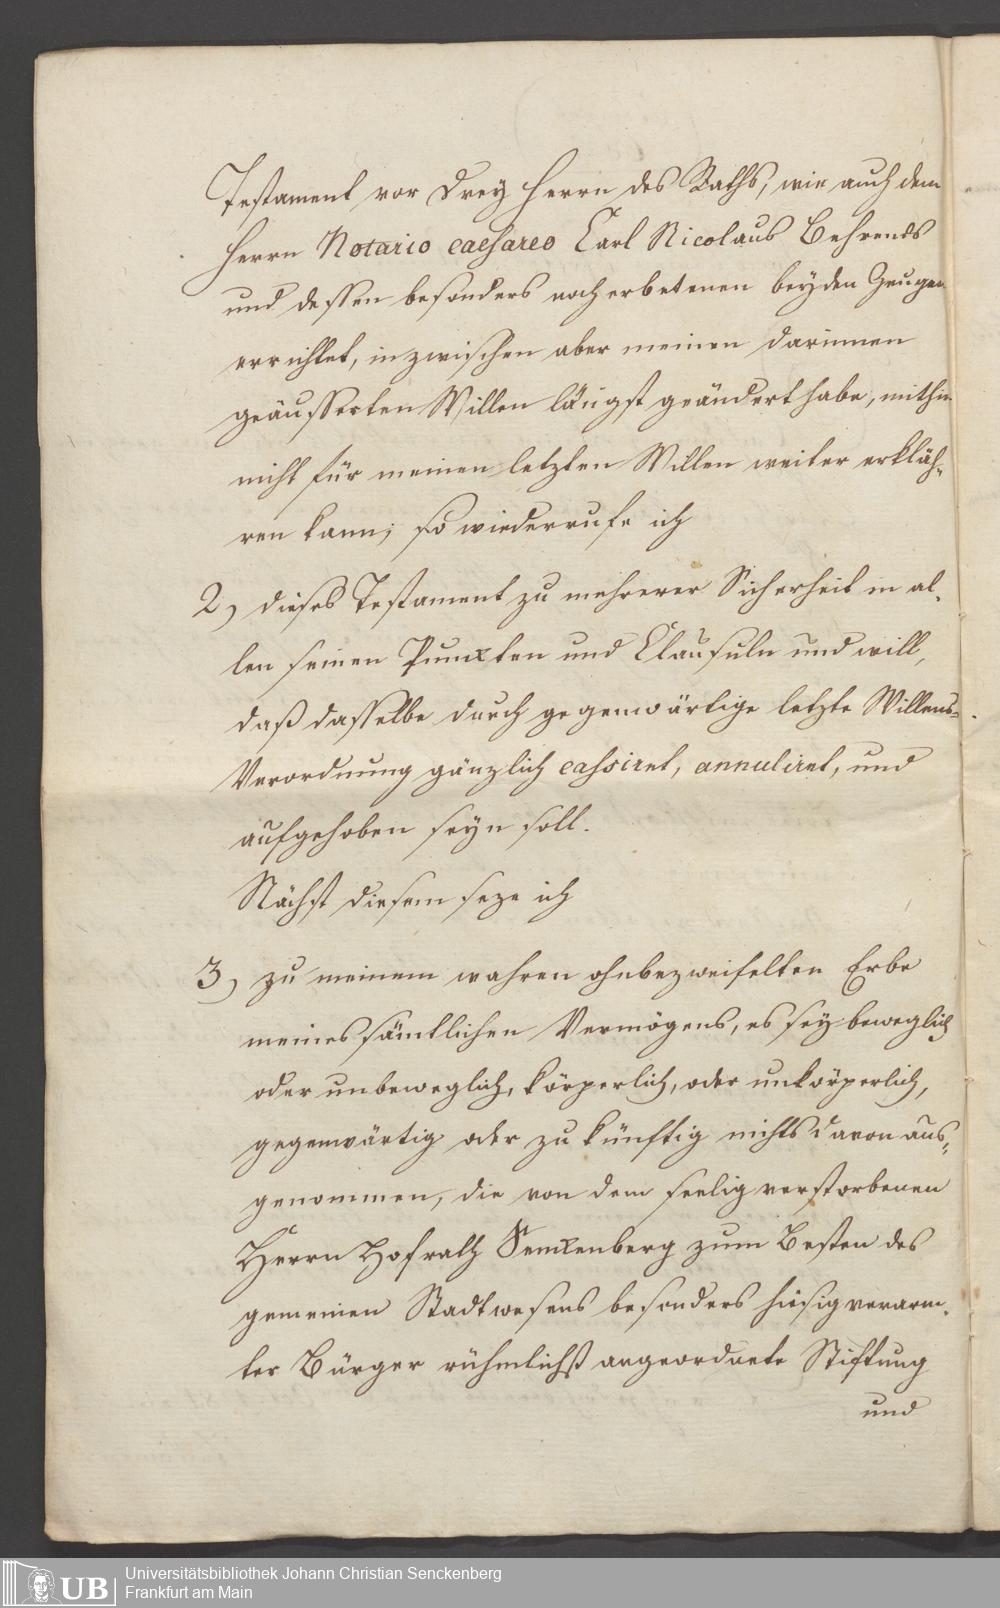 Testament vor drey Herrn des Raths, wie auch dem
Herrn Notario caesareo Carl Nicolaus Behrends
und dessen besonders noch erbetenen beyden Zeugen
errichtet, inzwischen aber meinen darinnen
geäusserten Willen längst geändert habe, mithin
nicht für meinen letzten Willen weiter erkläh-
ren kann; so wiederrufe ich
2) dieses Testament zu mehrerer Sicherheit in al-
len seinen Puncten und Clausuln und will,
daß dasselbe durch gegenwärtige letzte Willens-
Verordnung gänzlich cassiret, annuliret, und
aufgehoben seyn soll.
Nächst diesem seze ich
3) zu meinem wahren ohnbezweifelten Erbe
meines sämtlichen Vermögens, es sey beweglich
oder unbeweglich, körperlich, oder unkörperlich,
gegenwärtig oder zukünftig nichts davon aus-
genommen, die von dem seelig verstorbenen
Herrn Hofrath Senkenberg zum Besten des
gemeinen Stadtwesens besonders hiesig verarm-
ter Bürger rühmlichst angeordnete Stiftung
und
UB Universitätsbibliothek Johann Christian Senckenberg
Frankfurt am Main